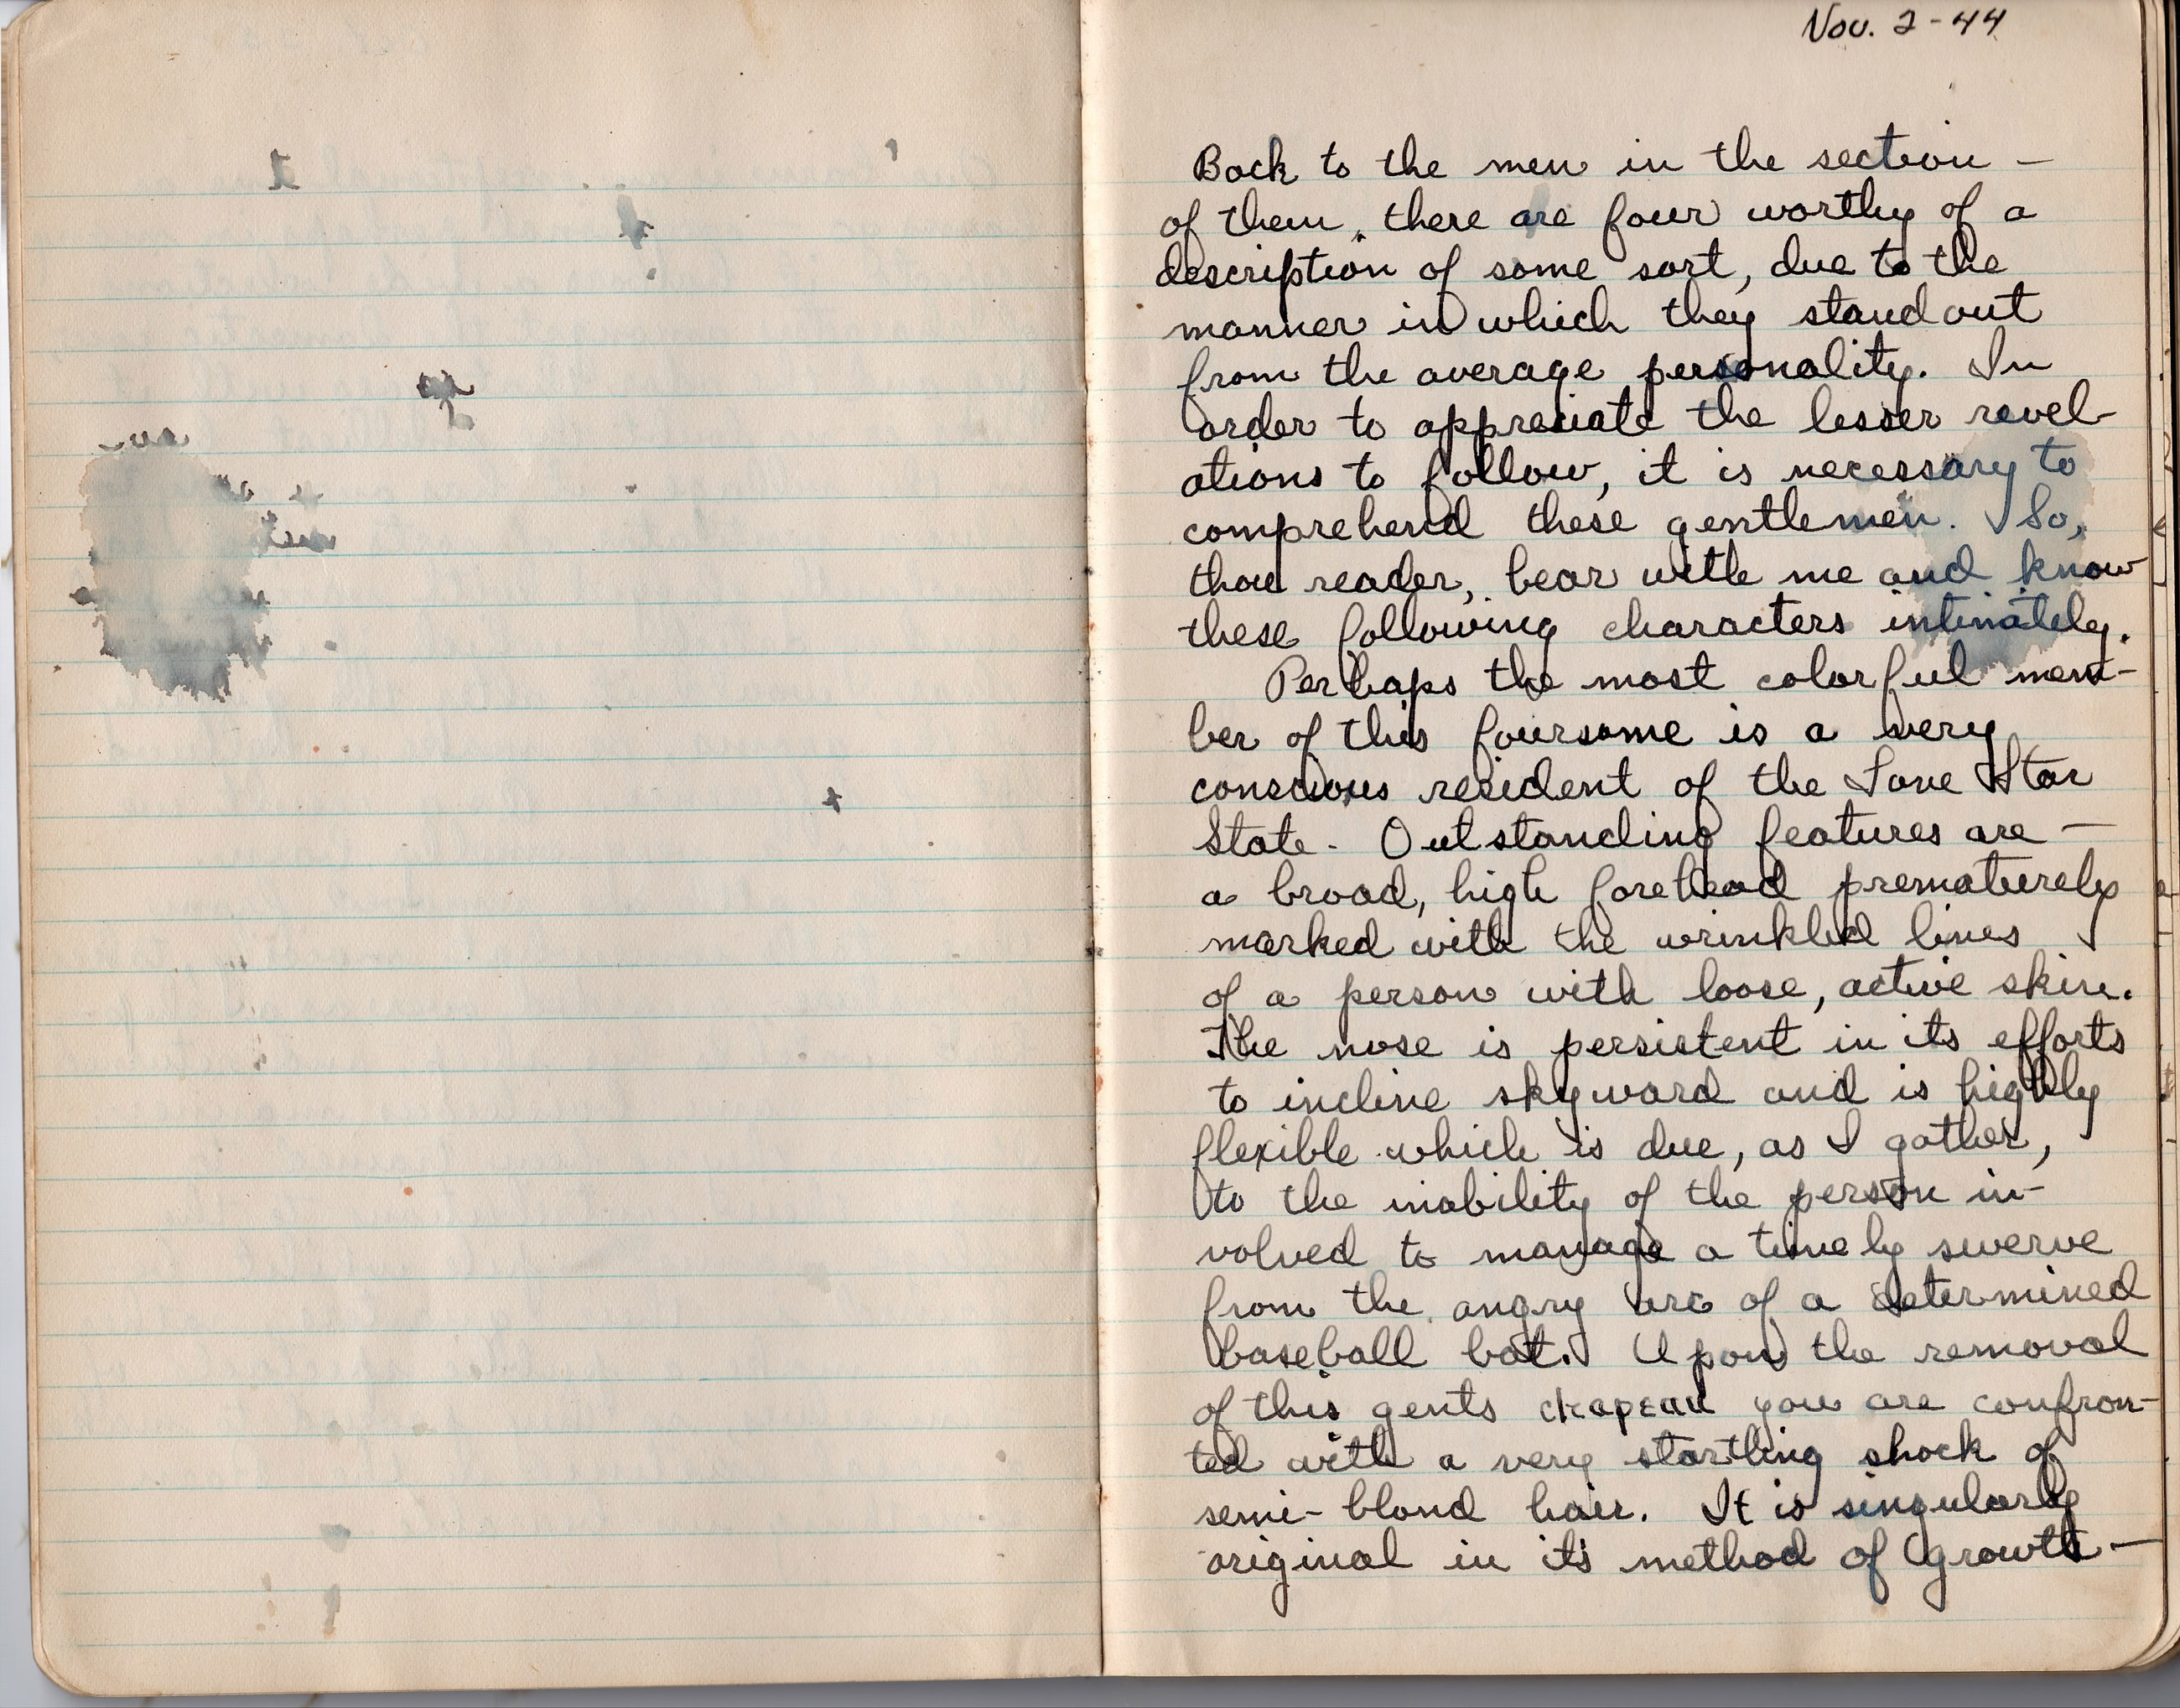 Nov. 2-44
Back to the men in the section —
of them, there are four worthy of a
description of some sort, due to the
manner in which they stand out
from the average personality. In
order to appreciate the lesser revel-
ations to follow, it is necessary to
comprehend these gentlemen. So,
thou reader, bear with me and know
these following characters intimately.
Perhaps the most colorful mem-
ber of this foursome is a very
conscious resident of the Lone Star
State. Outstanding features are —
a broad, high forehead prematurely
marked with the wrinkled lines
of a person with loose, active skin.
The nose is persistent in its efforts
to incline skyward and is highly
flexible which is due, as I gather,
to the inability of the person in-
volved to manage a timely swerve
from the angry arc of a determined
baseball bat. Upon the removal
of this gents chapeau you are confron-
ted with a very startling shock of
semi-blond hair. It is singularly
original in it's method of growth —